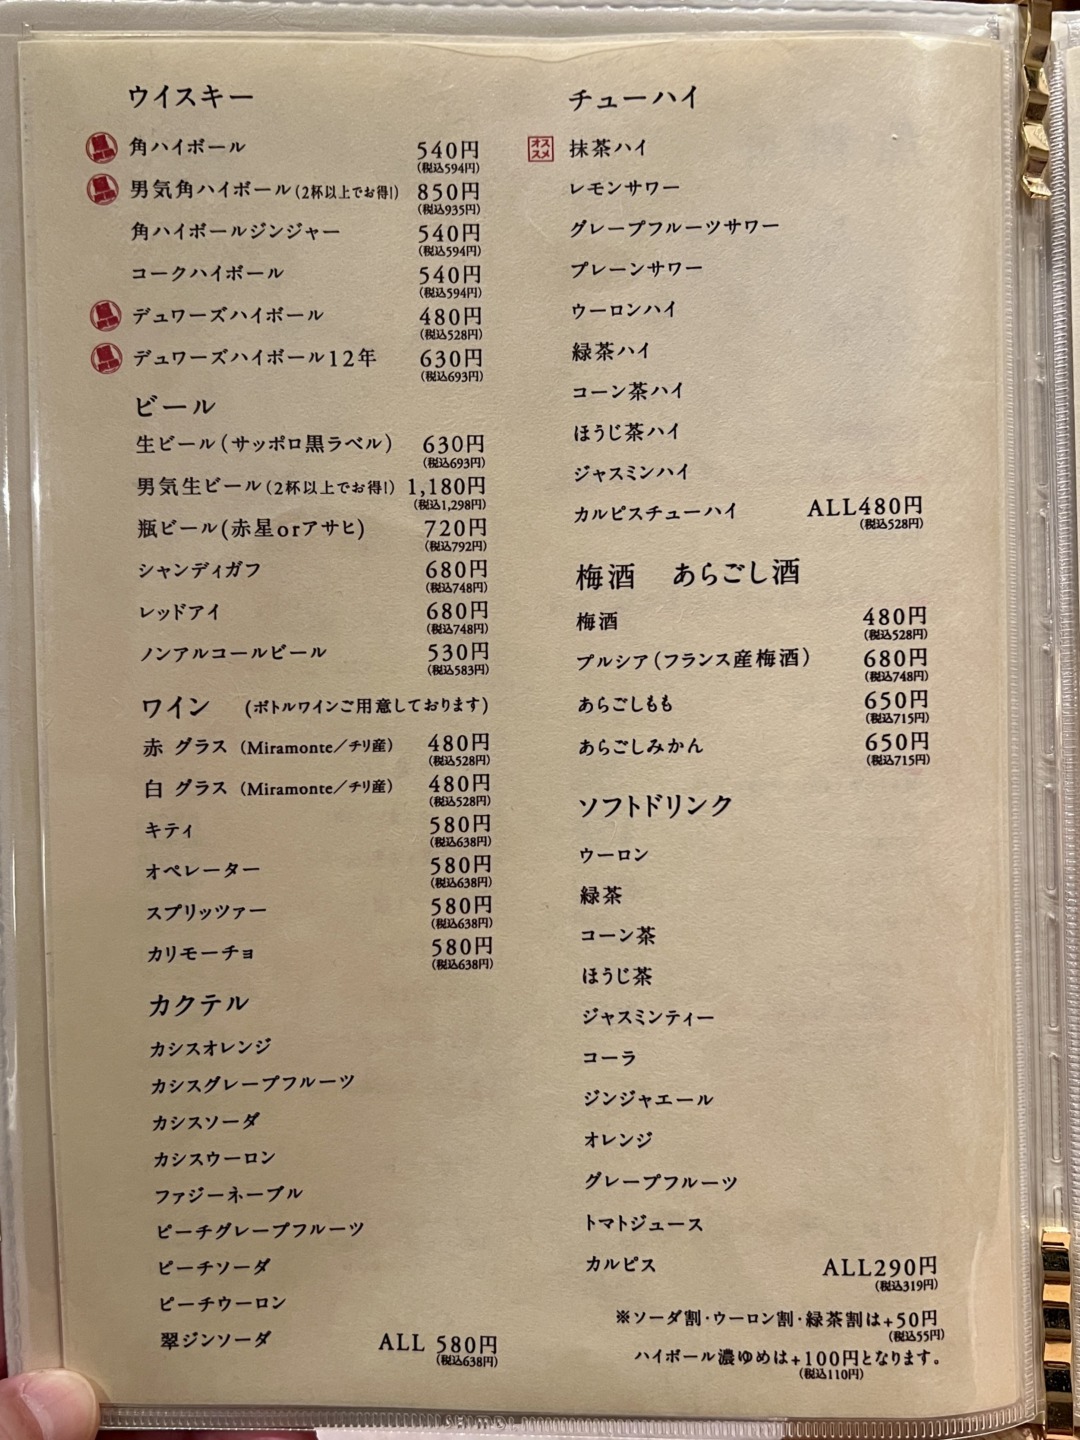 ウイスキー
角ハイボール 540円
(税込594円)
男気角ハイボール(2杯以上でお得!) 850円
(税込935円)
角ハイボールジンジャー 540円
(税込594円)
コークハイボール 540円
(税込594円)
デュワーズハイボール 480円
(税込528円)
デュワーズハイボール12年 630円
(税込693円)
ビール
生ビール(サッポロ黒ラベル) 630円
(税込693円)
男気生ビール(2杯以上でお得!) 1,180円
(税込1,298円)
瓶ビール(赤星orアサヒ) 720円
(税込792円)
シャンディガフ 680円
(税込748円)
レッドアイ 680円
(税込748円)
ノンアルコールビール 530円
(税込583円)
ワイン (ボトルワインご用意しております)
赤 グラス (Miramonte/チリ産) 480円
(税込528円)
白 グラス (Miramonte/チリ産) 480円
(税込528円)
キティ 580円
(税込638円)
オペレーター 580円
(税込638円)
スプリッツァー 580円
(税込638円)
カリモーチョ 580円
(税込638円)
カクテル
カシスオレンジ
カシスグレープフルーツ
カシスソーダ
カシスウーロン
ファジーネーブル
ピーチグレープフルーツ
ピーチソーダ
ピーチウーロン
翠ジンソーダ ALL 580円
(税込638円)
チューハイ
オススメ 抹茶ハイ
レモンサワー
グレープフルーツサワー
プレーンサワー
ウーロンハイ
緑茶ハイ
コーン茶ハイ
ほうじ茶ハイ
ジャスミンハイ
カルピスチューハイ ALL480円
(税込528円)
梅酒 あらごし酒
梅酒 480円
(税込528円)
プルシア(フランス産梅酒) 680円
(税込748円)
あらごしもも 650円
(税込715円)
あらごしみかん 650円
(税込715円)
ソフトドリンク
ウーロン
緑茶
コーン茶
ほうじ茶
ジャスミンティー
コーラ
ジンジャエール
オレンジ
グレープフルーツ
トマトジュース
カルピス ALL290円
(税込319円)
※ソーダ割・ウーロン割・緑茶割は+50円
(税込55円)
ハイボール濃ゆめは+100円となります。
(税込110円)